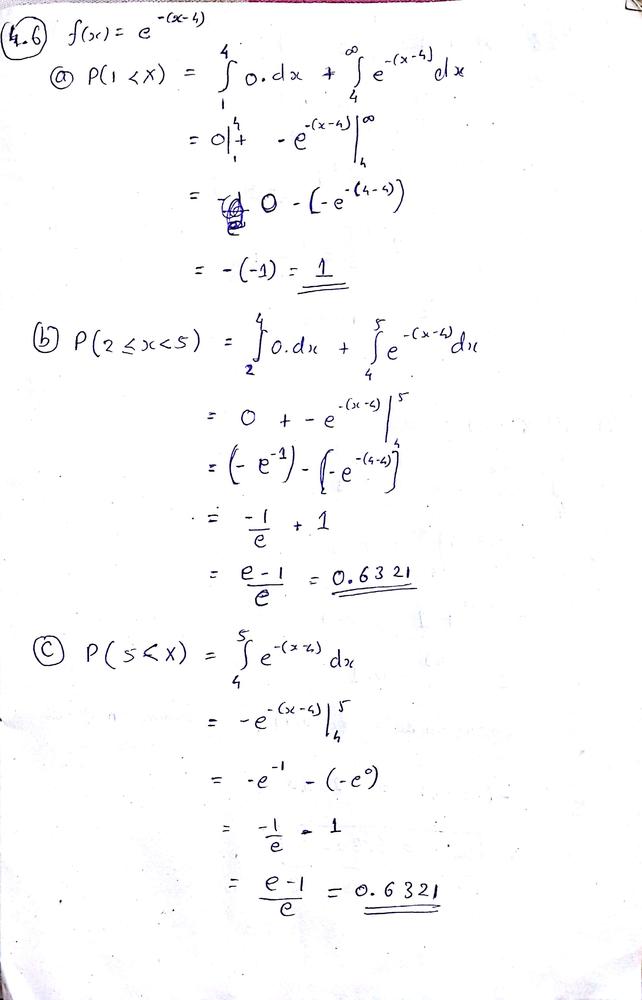 4.6 f(x) = e^{-(x-4)}
ⓐ P(1 < X) = ∫_1^4 0.dx + ∫_4^∞ e^{-(x-4)} dx
= 0|_1^4 + -e^{-(x-4)}|_4^∞
= 0 - (-e^{-(4-4)})
= -(-1) = 1
ⓑ P(2 ≤ x < 5) = ∫_2^4 0.dx + ∫_4^5 e^{-(x-4)} dx
= 0 + -e^{-(x-4)}|_4^5
= (-e^{-1}) - [-e^{-(4-4)}]
= -1/e + 1
= e-1/e = 0.6321
ⓒ P(5 < X) = ∫_4^5 e^{-(x-4)} dx
= -e^{-(x-4)}|_4^5
= -e^{-1} - (-e^0)
= -1/e - 1
= e-1/e = 0.6321